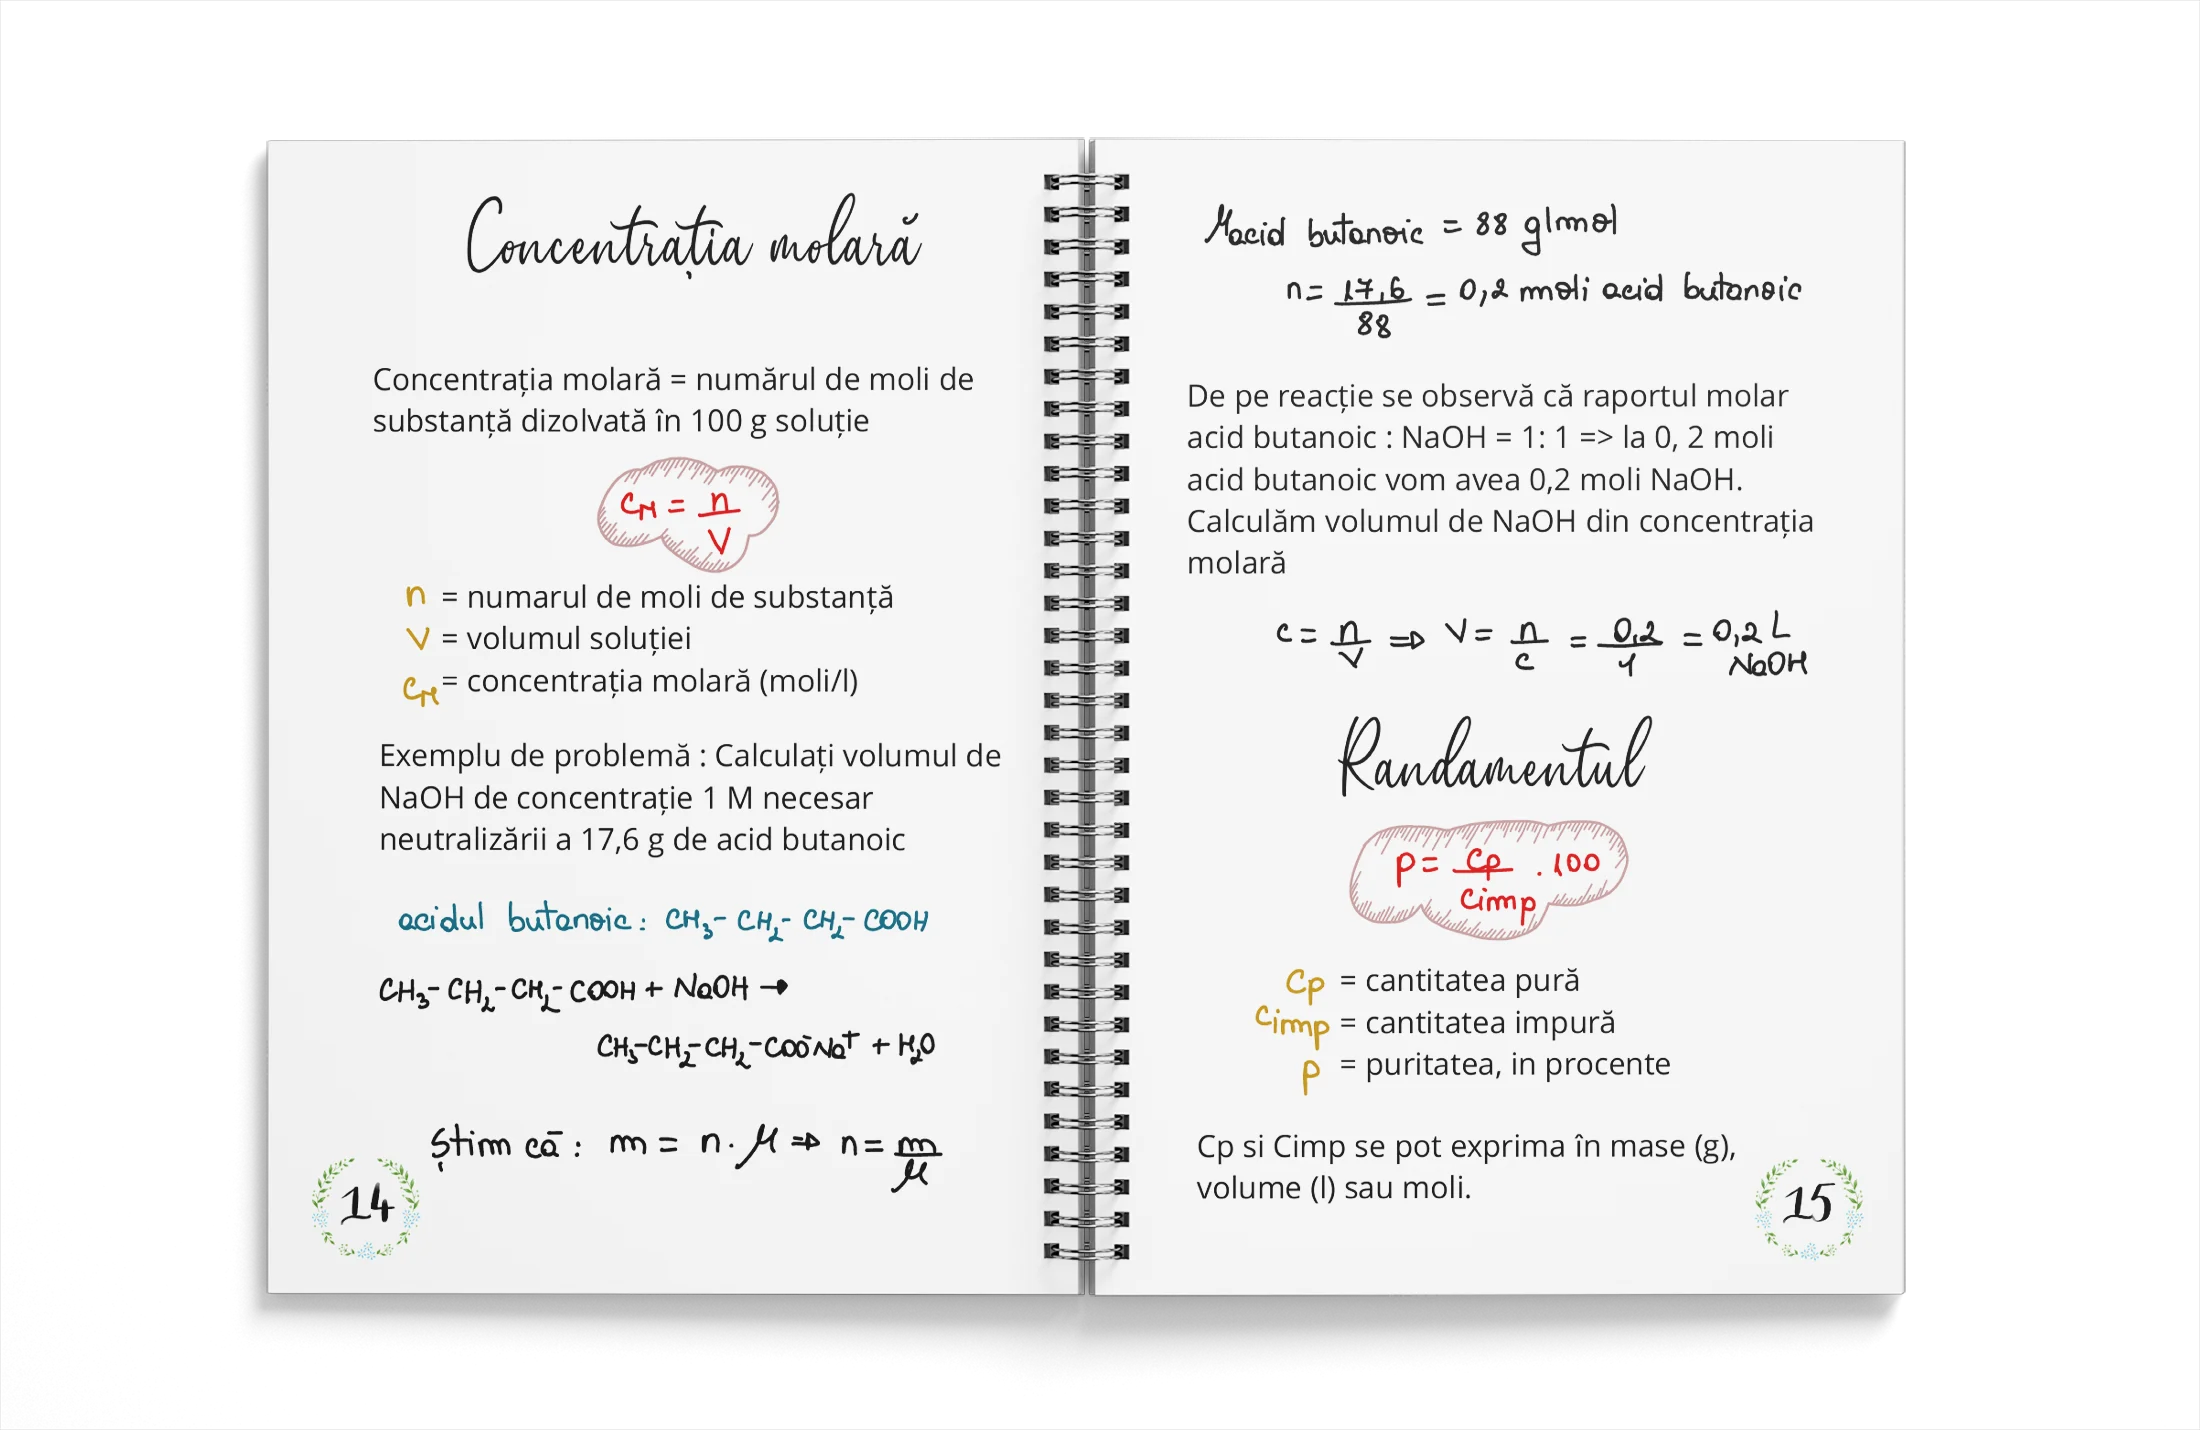 Concentrația molară
Concentrația molară = numărul de moli de
substanță dizolvată în 100 g soluție
CM = n/V
n = numarul de moli de substanță
V = volumul soluției
CM = concentrația molară (moli/l)
Exemplu de problemă : Calculați volumul de
NaOH de concentrație 1 M necesar
neutralizării a 17,6 g de acid butanoic
acidul butanoic: CH₃- CH₂- CH₂- COOH
CH₃- CH₂- CH₂- COOH + NaOH →
CH₃-CH₂-CH₂-COO⁻Na⁺ + H₂O
Știm că: m = n · μ ⇒ n = m/μ
14
μacid butanoic = 88 g/mol
n = 17,6/88 = 0,2 moli acid butanoic
De pe reacție se observă că raportul molar
acid butanoic : NaOH = 1: 1 => la 0, 2 moli
acid butanoic vom avea 0,2 moli NaOH.
Calculăm volumul de NaOH din concentrația
molară
c = n/V ⇒ V = n/c = 0,2/1 = 0,2 L
NaOH
Randamentul
p = Cp/Cimp . 100
Cp = cantitatea pură
Cimp = cantitatea impură
p = puritatea, in procente
Cp si Cimp se pot exprima în mase (g),
volume (l) sau moli.
15